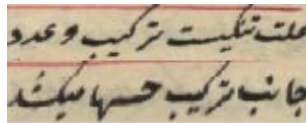 علت تنکیست ترکیب و عدد
جانب ترکیب حسها میکشد